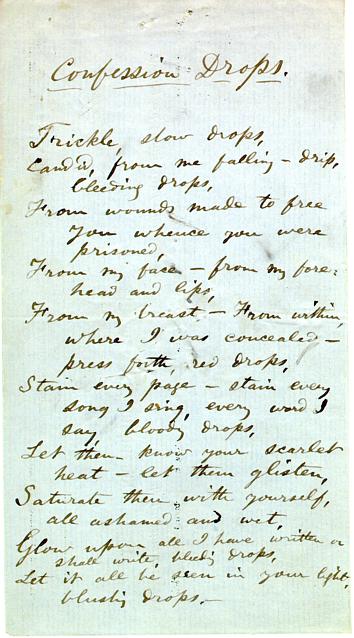 Confession Drops.
Trickle, slow drops,
Candid, from me falling – drip,
bleeding drops,
From wounds made to free
you whence you were
prisoned,
From my face – from my fore-
head and lips,
From my breast – From within
where I was concealed –
press forth, red drops,
Stain every page – stain every
song I sing, every word I
say bloody drops,
Let them know your scarlet
heat – let them glisten,
Saturate them with yourself,
all ashamed and wet,
Glow upon all I have written or
shall write, bleedg drops,
Let it all be seen in your light,
blushig drops. –